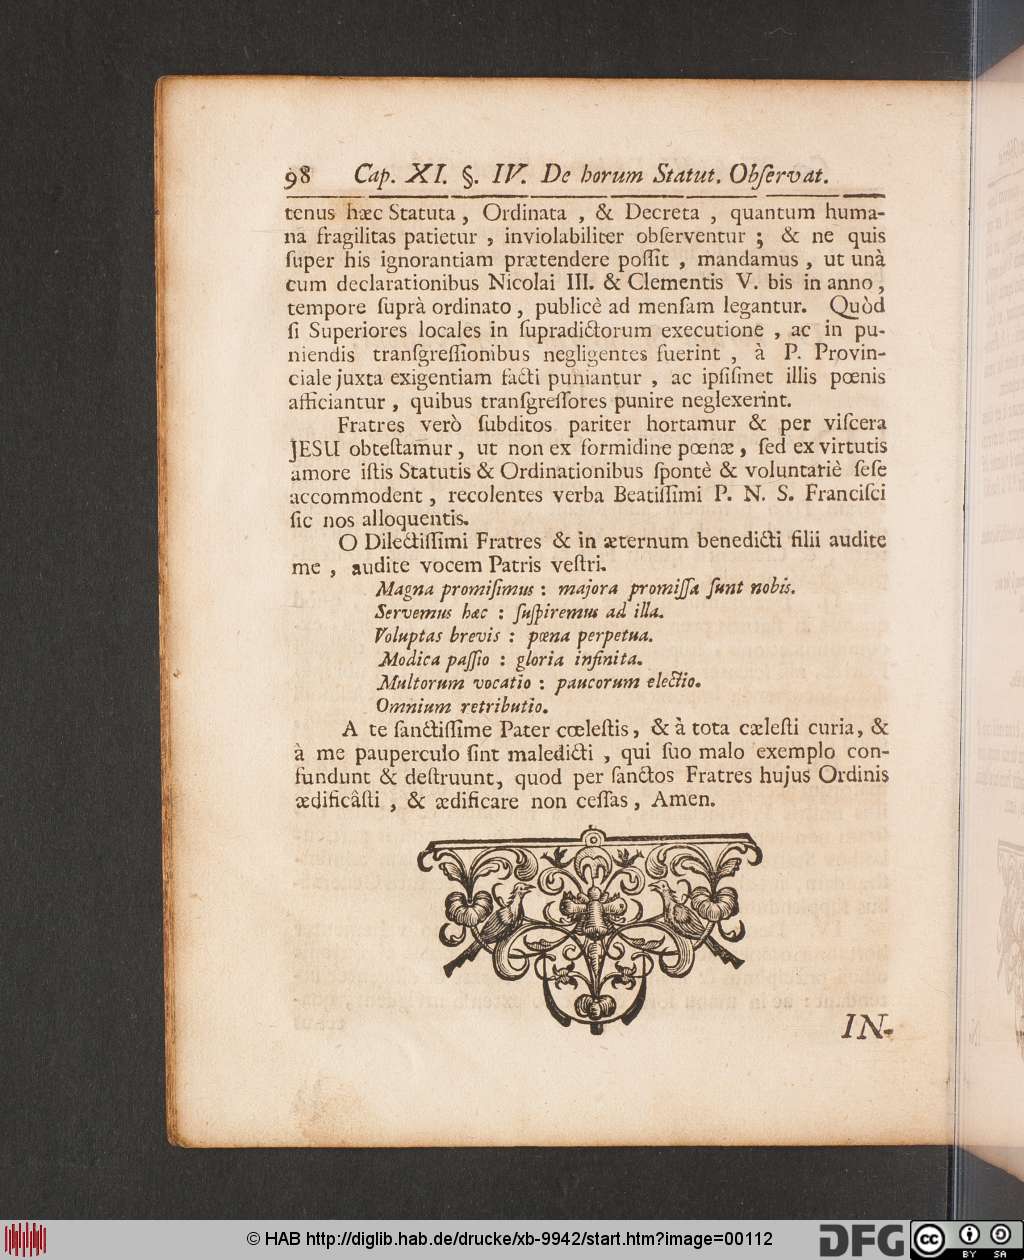 98 Cap. XI. §. IV. De horum Statut. Obſervat.
tenus hæc Statuta, Ordinata, & Decreta, quantum huma-
na fragilitas patietur, inviolabiliter obſerventur; & ne quis
ſuper his ignorantiam prætendere poſſit, mandamus, ut unà
cum declarationibus Nicolai III. & Clementis V. bis in anno,
tempore ſuprà ordinato, publicè ad menſam legantur. Quòd
ſi Superiores locales in ſupradictorum executione, ac in pu-
niendis tranſgreſſionibus negligentes fuerint, à P. Provin-
ciale juxta exigentiam facti puniantur, ac ipſiſmet illis pœnis
afficiantur, quibus tranſgreſſores punire neglexerint.
Fratres verò ſubditos pariter hortamur & per viſcera
JESU obteſtamur, ut non ex formidine pœnæ, ſed ex virtutis
amore iſtis Statutis & Ordinationibus ſpontè & voluntariè ſeſe
accommodent, recolentes verba Beatiſſimi P. N. S. Franciſci
ſic nos alloquentis.
O Dilectiſſimi Fratres & in æternum benedicti filii audite
me, audite vocem Patris veſtri.
Magna promiſimus: majora promiſſa ſunt nobis.
Servemus hæc: ſuſpiremus ad illa.
Voluptas brevis: pœna perpetua.
Modica paſſio: gloria infinita.
Multorum vocatio: paucorum electio.
Omnium retributio.
A te ſanctiſſime Pater cœleſtis, & à tota cæleſti curia, &
à me pauperculo ſint maledicti, qui ſuo malo exemplo con-
fundunt & deſtruunt, quod per ſanctos Fratres hujus Ordinis
ædificâſti, & ædificare non ceſſas, Amen.
IN-
© HAB http://diglib.hab.de/drucke/xb-9942/start.htm?image=00112
DFG
cc BY SA